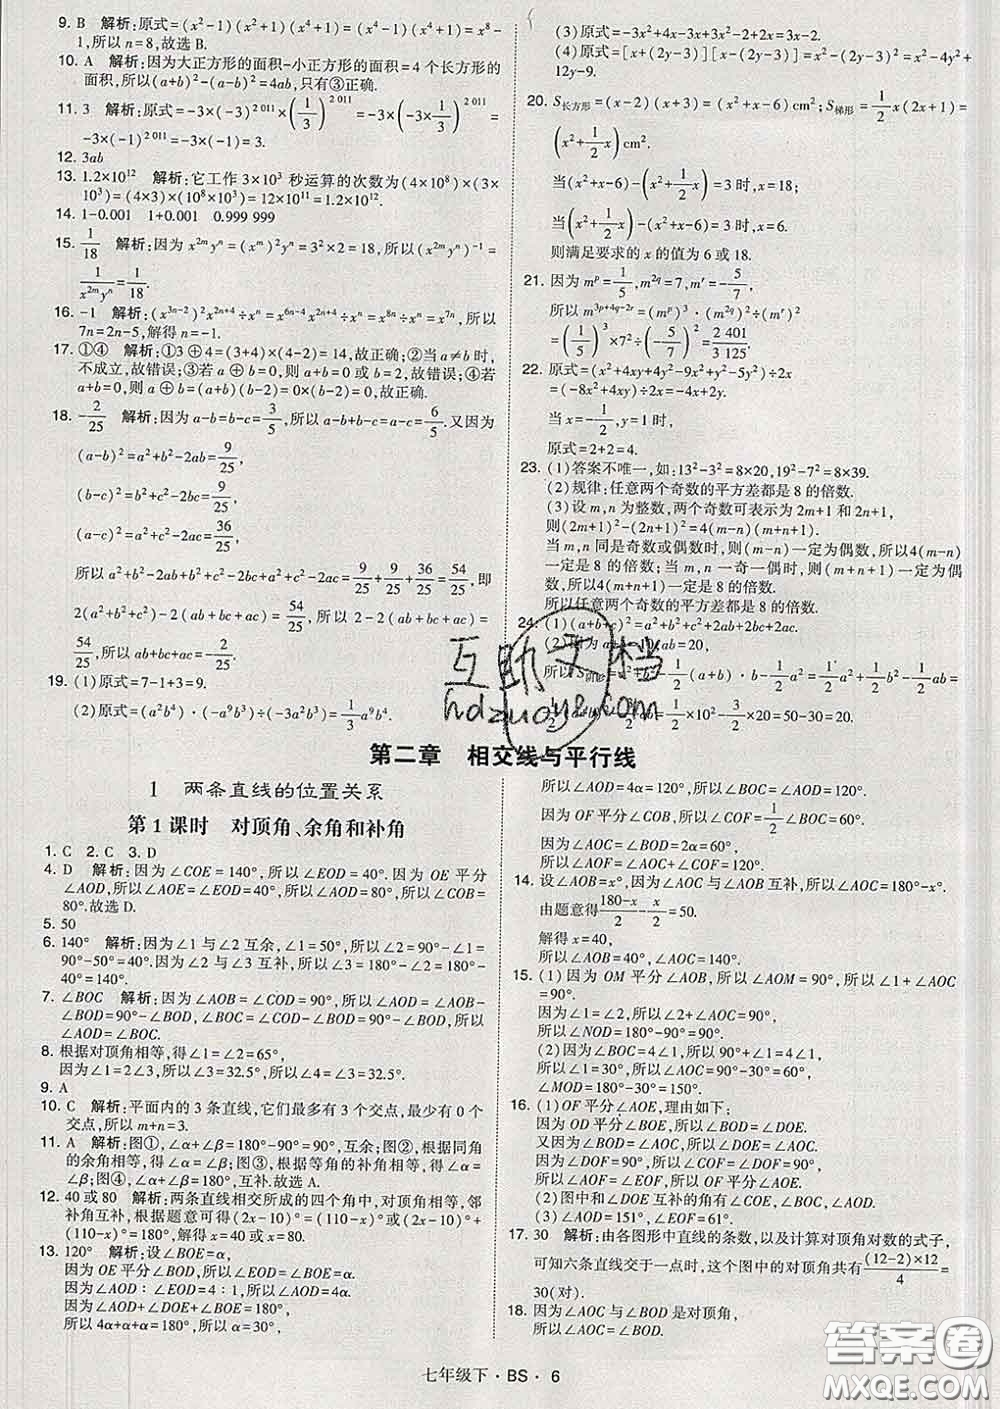 9. B 解析:原式=(x²-1)(x²+1)(x⁴+1)=(x⁴-1)(x⁴+1)=x⁸-
1,所以 n=8,故选 B.
10. A 解析:因为大正方形的面积-小正方形的面积=4 个长方形的
面积,所以(a+b)²-(a-b)²=4ab,只有③正确.
11. 3 解析:原式=-3×(-3)²⁰¹¹×(1/3)²⁰¹¹=-3×(-3×1/3)²⁰¹¹=
-3×(-1)²⁰¹¹=-3×(-1)=3.
12. 3ab
13. 1.2×10¹² 解析:它工作 3×10³ 秒运算的次数为(4×10⁸)×(3×
10³)=(4×3)×(10⁸×10³)=12×10¹¹=1.2×10¹².
14. 1-0.001 1+0.001 0.999 999
15. 1/18 解析:因为 x²ᵐyⁿ=(xᵐ)²yⁿ=3²×2=18,所以(x²ᵐyⁿ)⁻¹=
1/x²ᵐyⁿ=1/18.
16. -1 解析:(x³ⁿ⁻²)²x²ⁿ⁺⁴÷xⁿ=x⁶ⁿ⁻⁴x²ⁿ⁺⁴÷xⁿ=x⁸ⁿ÷xⁿ=x⁷ⁿ,所以
7n=2n-5,解得 n=-1.
17. ①④ 解析:①3⊕4=(3+4)×(4-2)=14,故正确;②当 a≠b 时,
不成立,故错误;③若 a⊕b=0,则 a+b=0 或 b=2,故错误;④若
a+b=0,则 a⊕b=(a+b)(b-2)=0×(b-2)=0,故正确.
18. -2/25 解析:因为 a-b=b-c=3/5,所以 a-b+b-c=a-c=6/5.又因为
(a-b)²=a²+b²-2ab=9/25,
(b-c)²=b²+c²-2bc=9/25,
(a-c)²=a²+c²-2ac=36/25,
所以 a²+b²-2ab+b²+c²-2bc+a²+c²-2ac=9/25+9/25+36/25=54/25,即
2(a²+b²+c²)-2(ab+bc+ac)=54/25,所以 2-2(ab+bc+ac)=
54/25,所以 ab+bc+ac=-2/25.
19. (1)原式=7-1+3=9.
(2)原式=(a²b⁴)·(-a⁹b³)÷(-3a²b³)=1/3a⁹b⁴.
(3)原式=-3x²+4x-3x+3x²=3x-2.
(4)原式=[x+(2y-3)][x-(2y-3)]=x²-(2y-3)²=x²-4y²+
12y-9.
20. S长方形=(x-2)(x+3)=(x²+x-6)cm²;S梯形=1/2x(2x+1)=
(x²+1/2x)cm².
当(x²+x-6)-(x²+1/2x)=3 时,x=18;
当(x²+1/2x)-(x²+x-6)=3 时,x=6.
则满足要求的 x 的值为 6 或 18.
21. 因为 mᵖ=1/5,m²q=7,mʳ=-5/7,
所以 m³ᵖ⁺⁴q⁻²ʳ=(mᵖ)³·(m²q)²÷(mʳ)²
=(1/5)³×7²÷(-5/7)²=2 401/3 125.
22. 原式=(x²+4xy+4y²-9x²+y²-5y²)÷2x
=(-8x²+4xy)÷2x=-4x+2y.
当 x=-1/2,y=1 时,
原式=2+2=4.
23. (1)答案不唯一,如:13²-3²=8×20,19²-7²=8×39.
(2)规律:任意两个奇数的平方差都是 8 的倍数.
(3)设 m,n 为整数,两个奇数可表示为 2m+1 和 2n+1,
则(2m+1)²-(2n+1)²=4(m-n)(m+n+1).
当 m,n 同是奇数或偶数时,则(m-n)一定为偶数,所以4(m-n)
一定是 8 的倍数;当 m,n 一奇一偶时,则(m+n+1)一定为偶
数,所以4(m+n+1)一定是 8 的倍数.
所以任意两个奇数的平方差都是 8 的倍数.
24. (1)(a+b+c)²=a²+b²+c²+2ab+2bc+2ac.
(2)因为 a+b=10,ab=20,
所以 S阴影=a²+b²-1/2(a+b)·b-1/2a²=1/2a²+1/2b²-1/2ab=
1/2×10²-3/2×20=50-30=20.
互助文档
hdzuoye.com
第二章 相交线与平行线
1 两条直线的位置关系
第 1 课时 对顶角、余角和补角
1. C 2. C 3. D
4. D 解析:因为∠COE=140°,所以∠EOD=40°.因为 OE 平分
∠AOD,所以∠AOE=∠EOD=40°,所以∠AOD=80°,所以∠COB=
80°.故选 D.
5. 50
6. 140° 解析:因为∠1 与∠2 互余,∠1=50°,所以∠2=90°-∠1=
90°-50°=40°.因为∠2 与∠3 互补,所以∠3=180°-∠2=180°-
40°=140°.
7. ∠BOC 解析:因为∠AOB=∠COD=90°,所以∠AOD=∠AOB-
∠BOD=90°-∠BOD,∠BOC=∠COD-∠BOD=90°-∠BOD,所以
∠AOD=∠BOC.
8. 根据对顶角相等,得∠1=∠2=65°,
因为∠1=2∠3,所以∠3=32.5°,所以∠4=∠3=32.5°.
9. A
10. C 解析:平面内的 3 条直线,它们最多有 3 个交点,最少有 0 个
交点,所以 m+n=3.
11. A 解析:图①,∠α+∠β=180°-90°=90°,互余;图②,根据同角
的余角相等,∠α=∠β;图③,根据等角的补角相等,∠α=
∠β;图④,∠α+∠β=180°,互补.故选 A.
12. 40 或 80 解析:两条直线相交所成的四个角中,对顶角相等,邻
补角互补,根据题意可得(2x-10)°=(110-x)°或(2x-10)°+
(110-x)°=180°,解得 x=40 或 x=80.
13. 120° 解析:设∠BOE=α,
因为 OE 平分∠BOD,所以∠DOE=∠BOE=α.
因为∠AOD∶∠EOD=4∶1,所以∠AOD=4α.
因为∠AOD+∠DOE+∠BOE=180°,
所以 4α+α+α=180°,所以 α=30°,
所以∠AOD=4α=120°,所以∠BOC=∠AOD=120°,
因为 OF 平分∠COB,所以∠COF=1/2∠BOC=60°.
因为∠AOC=∠BOD=2α=60°,
所以∠AOF=∠AOC+∠COF=120°.
14. 设∠AOB=x°,因为∠AOC 与∠AOB 互补,所以∠AOC=180°-x°.
由题意得180-x/2-x/2=50.
解得 x=40,
所以∠AOB=40°,∠AOC=140°.
15. (1)因为 OM 平分∠AOB,所以∠AOM=90°,所以∠1+∠AOC=
90°.
因为∠1=∠2,所以∠2+∠AOC=90°,
所以∠NOD=180°-90°=90°.
(2)因为∠BOC=4∠1,所以90°+∠1=4∠1,
所以∠1=30°,所以∠AOC=90°-30°=60°,
∠MOD=180°-30°=150°.
16. (1)OF 平分∠AOE,理由如下:
因为 OD 平分∠BOE,所以∠BOD=∠DOE.
又因为∠AOC=∠BOD,所以∠AOC=∠DOE.
因为∠DOF=90°,所以∠COF=90°,
所以∠AOF=∠EOF,所以 OF 平分∠AOE.
(2)图中和∠DOE 互补的角有∠COE,∠BOC,∠AOD.
(3)∠AOD=151°,∠EOF=61°.
17. 30 解析:由各图形中直线的条数,以及计算对顶角对数的式子,
可知六条直线交于一点时,这个图中的对顶角共有(12-2)×12/4=
30(对).
18. 因为∠AOC 与∠BOD 是对顶角,
所以∠AOC=∠BOD.
七年级下·BS·6
答案圈
MXQE.COM